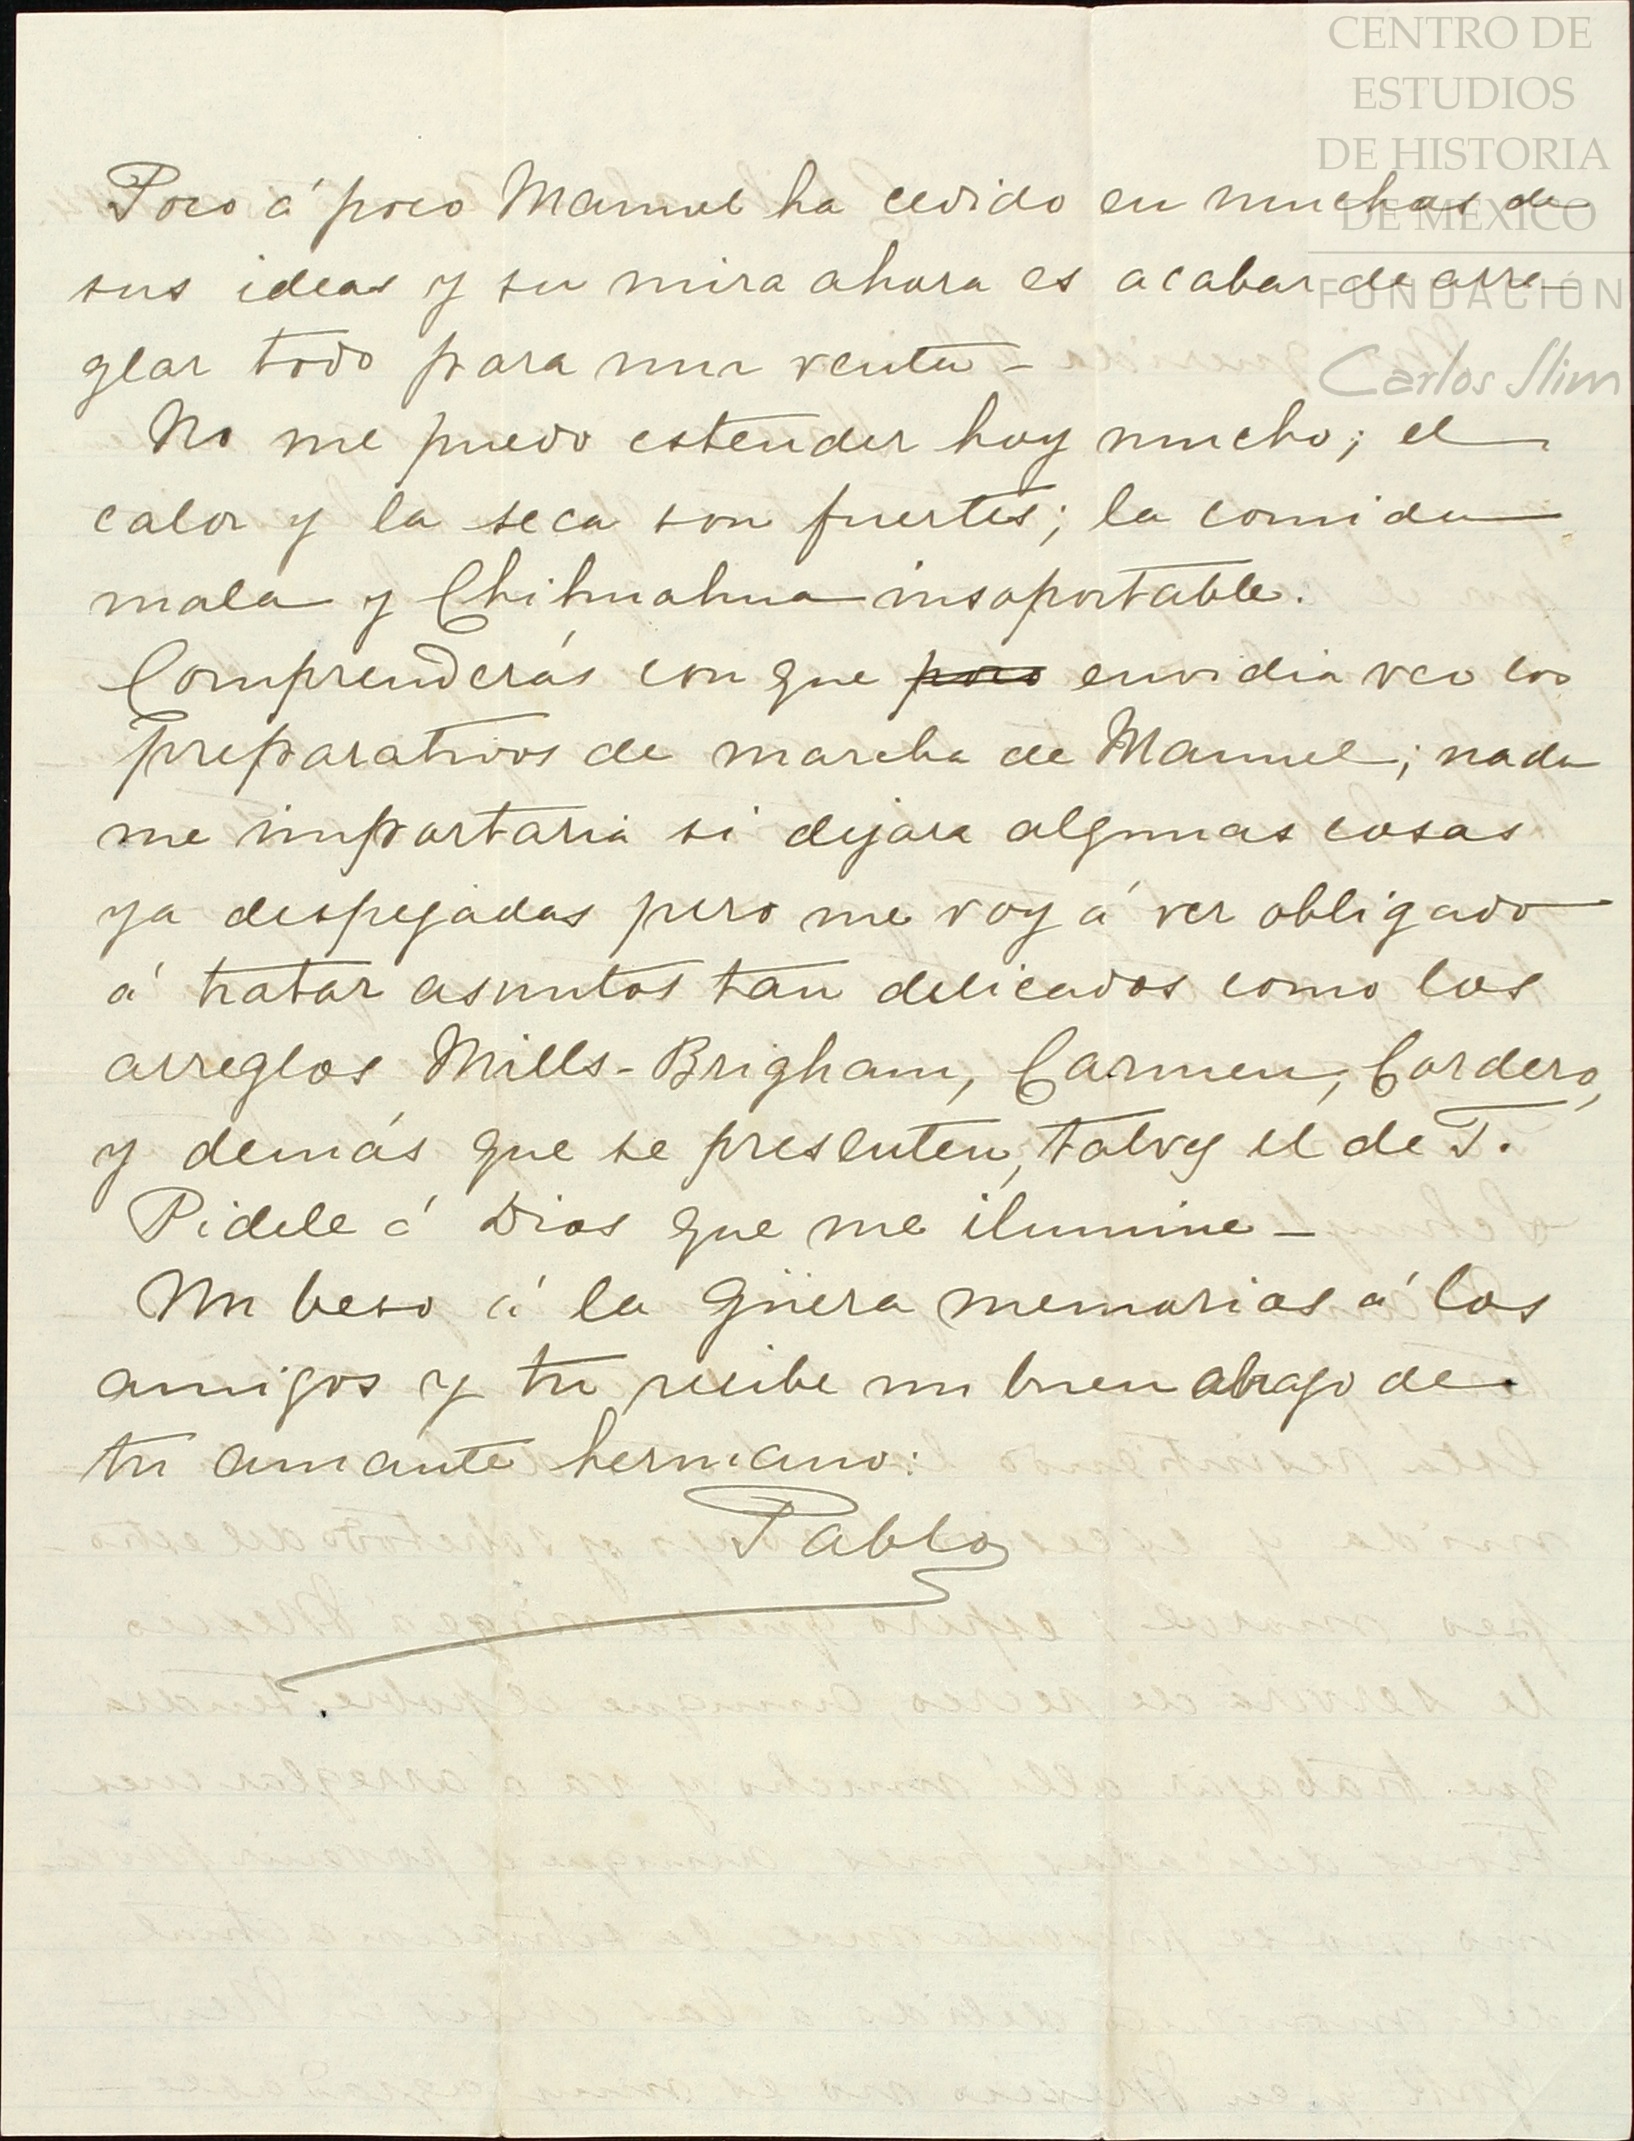 CENTRO DE
ESTUDIOS
DE HISTORIA
DE MEXICO
FUNDACIÓN
Carlos Slim
Poco á poco Manuel ha cedido en muchas de
sus ideas y su mira ahora es acabar de arre-
glar todo para una venta -
No me puedo estender hoy mucho; el
calor y la seca son fuertes; la comida
mala y Chihuahua insoportable.
Comprenderás con que poco envidia veo los
preparativos de marcha de Manuel; nada
me importaria si dejara algunas cosas
ya despejadas pero me voy á ver obligado
á tratar asuntos tan delicados como los
arreglos Mills-Brigham, Carmen, Cordero,
y demás que se presenten, talvez el de T.
Pidele á Dios que me ilumine -
Un beso á la güera memorias á los
amigos y tu recibe un buen abrazo de
tu amante hermano:
Pablo